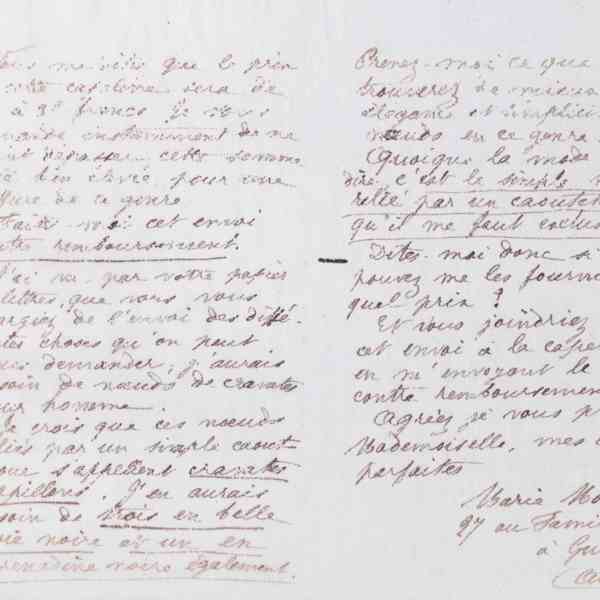 me dites que le prix
cette capeline sera de
à 30 francs Je vous
demande instamment de ne
dépasser cette somme
bien élevée pour une
de ce genre
Faites-moi cet envoi
contre remboursement.
J'ai vu par votre papier
lettres, que vous vous
chargiez de l'envoi des diffé-
choses qu'on peut
demander, j'aurais
besoin de nœuds de cravates
pour homme.
Je crois que ces nœuds
reliés par un simple caout-
s'appellent cravates
papillons. J'en aurais
besoin de trois en belle
soie noire et un en
grenadine noire également.
Prenez-moi ce que
trouverez de mieux
élégance et simplici
nœuds en ce genre.
Quoique la mode
dire c'est le simple
relié par un caoutch
qu'il me faut exclus
Dites-moi donc si
pouvez me les fournir
quel prix ?
Et vous joindriez
cet envoi à la cape
en m'envoyant le
contre remboursement
Agréez je vous p
Mademoiselle, mes
parfaites
Maria
27 au
à Gu